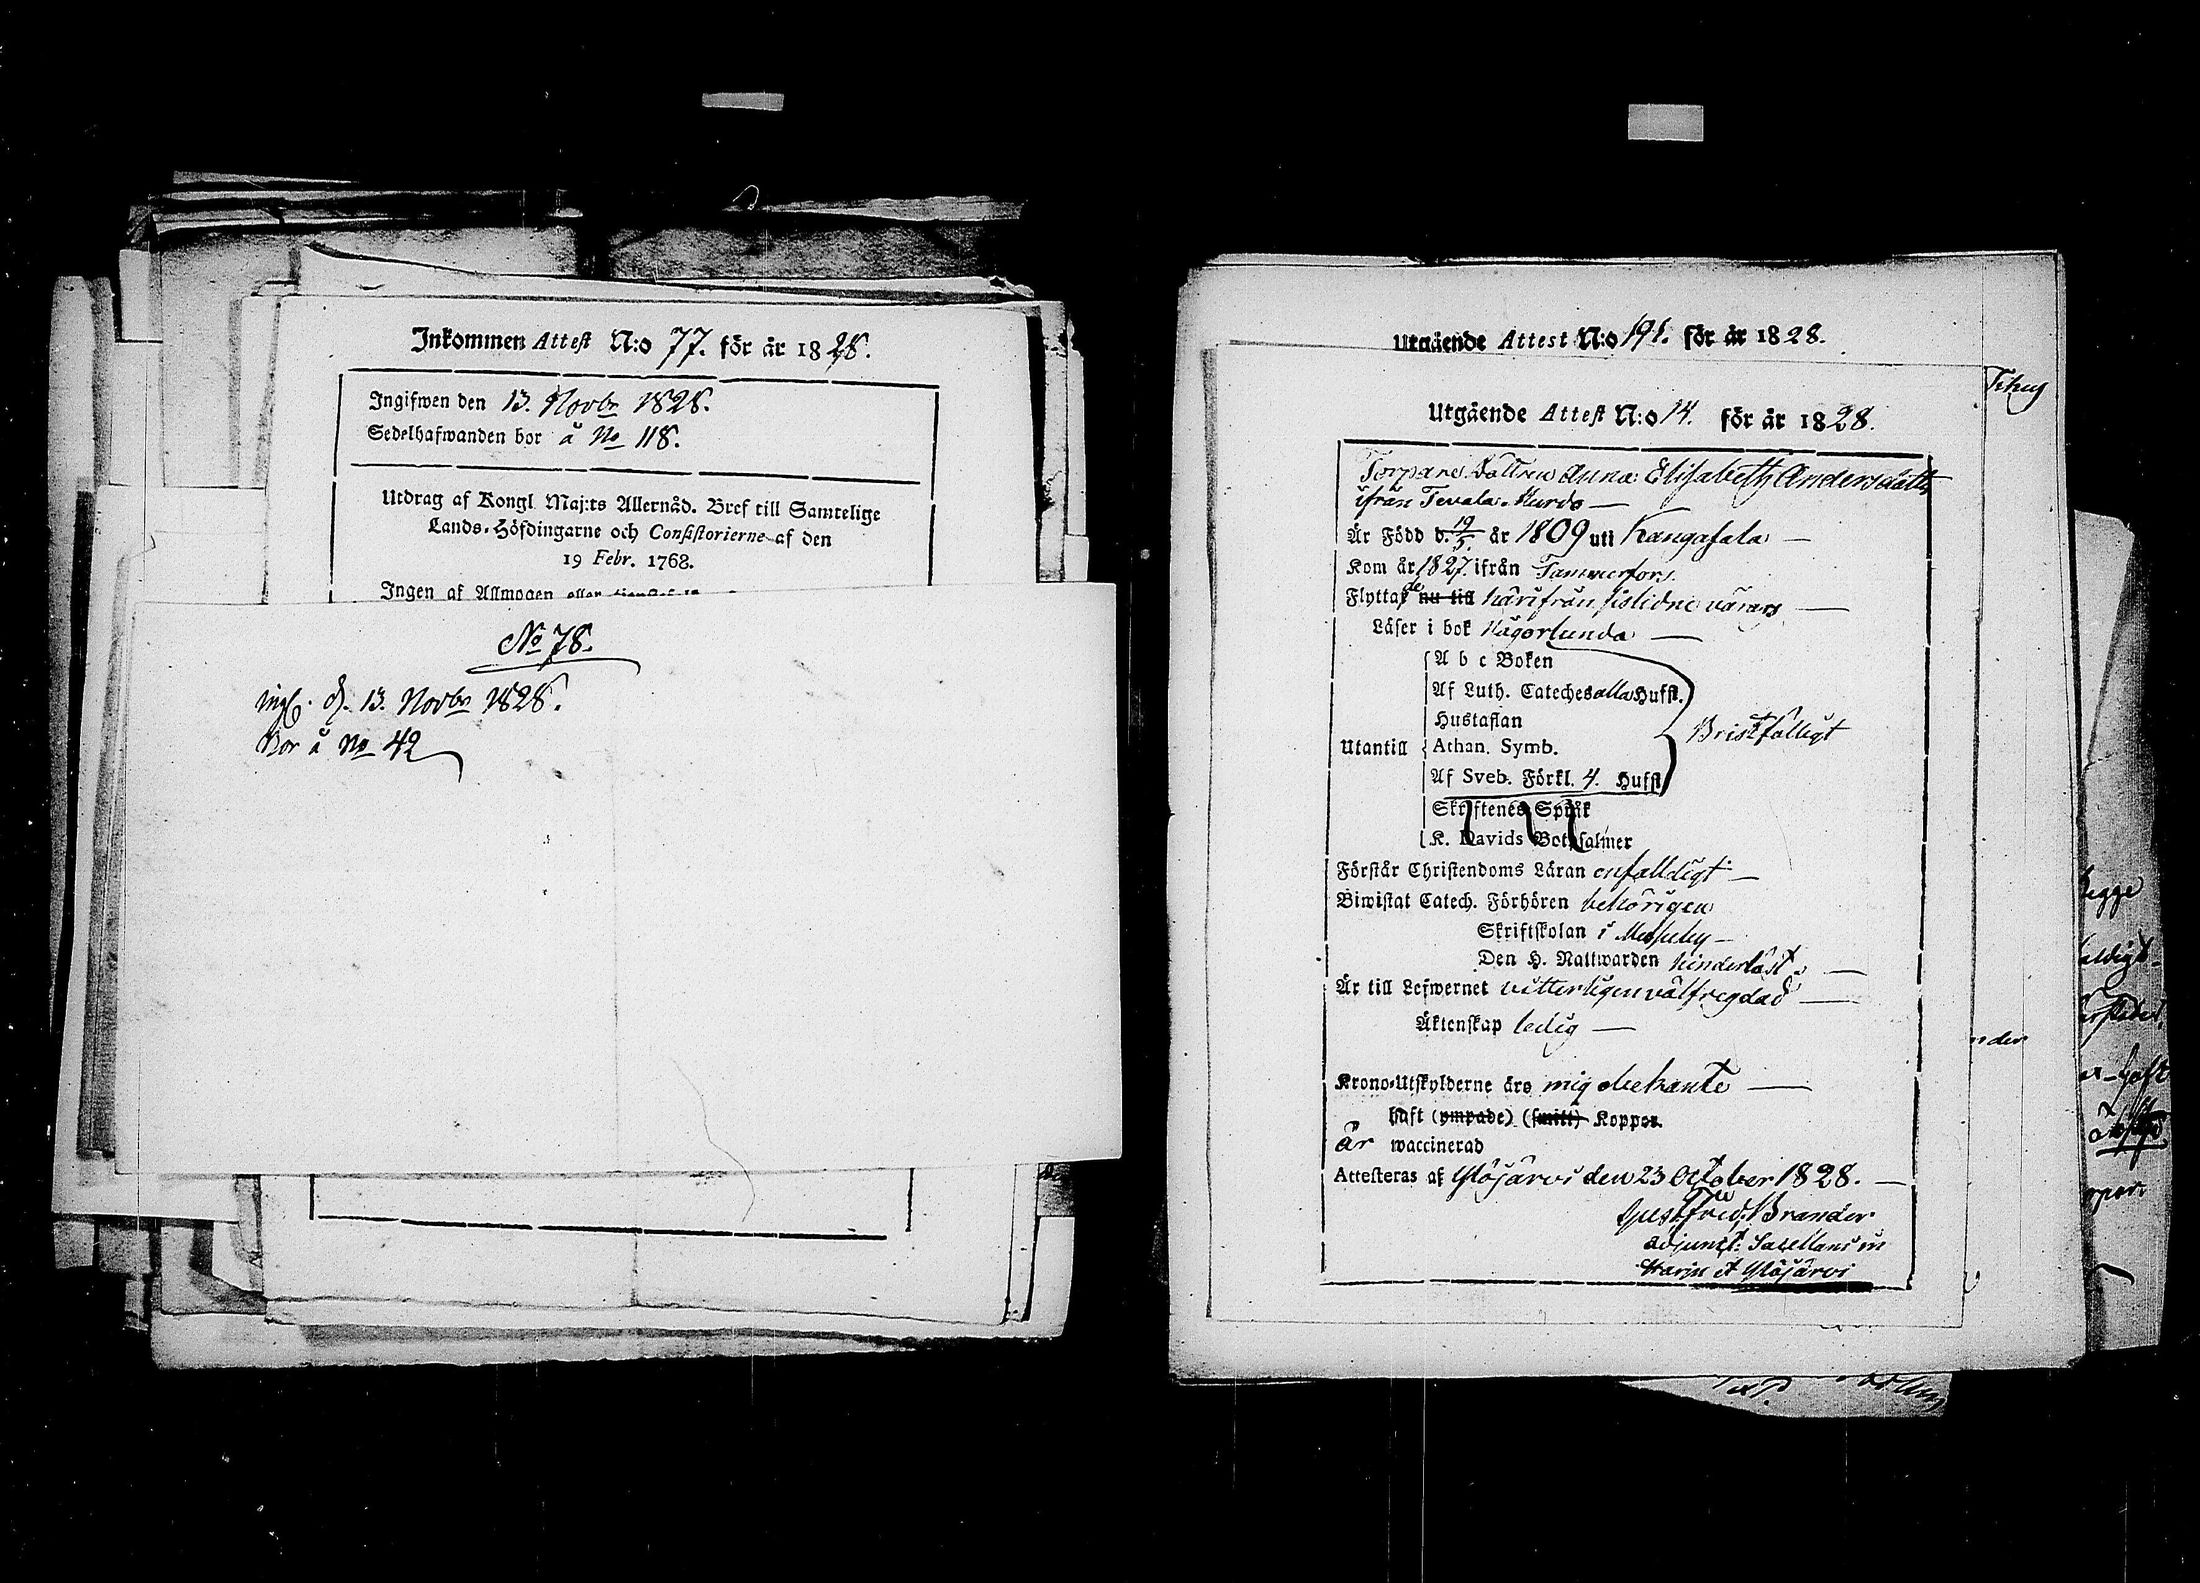 Inkommen Attest N:o 77. för år 1828.
Ingifwen den 13. Novbr 1828.
Sedelhafwanden bor å No 118.
Utdrag af Kongl. Maj:ts Allernåd. Bref till Samtelige
Lands-Höfdingarne och Consistorierne af den
19 Febr. 1768.
Ingen af Allmogen eller
No 78.
ingf. d. 13. Novbr 1828.
Bor å No 42
Utgående Attest N:o 191. för år 1828.
Utgående Attest N:o 14. för år 1828.
Torpare Dottren Anna Elisabeth Andersdotter
ifrån Tevala Kurds
Är Född d. 19/5. år 1809 uti Kangasala
Kom år 1827. ifrån Tammerfors.
Flyttade nu till härifrån sistledne
Läser i bok någorlunda
A b c Boken
Af Luth. Cateches alla Hufst.
Hustaflan
Utantill Athan. Symb.
Bristfälligt
Af Sveb. Förkl. 4. Hufst
Skriftenes Språk
K. Davids Botpsalmer
Förstår Christendoms Läran enfalldigt
Biwistat Catech. Förhören behörigen
Skriftskolan i Messuby
Den H. Nattwarden hinderlöst
Är till Lefwernet vitterligen välfregdad
Äktenskap ledig
Krono-Utskylderne äro mig obekante
haft (ympade) (smitt) Koppor.
är waccinerad
Attesteras af Ylöjärvi den 23 October 1828.
Gust Fred: Brander
adjunct: Sacellani in
Harju et Ylöjärvi